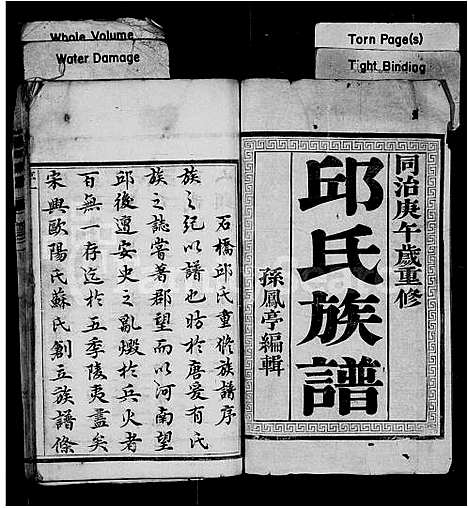 Whole Volume
Water Damage
Torn Page(s)
Tight Binding
同治庚午歲重修
邱氏族譜
孫鳳亭編輯
石橋邱氏重修族譜序
族之紀以譜也昉於唐爰有氏
族之誌嘗著郡望而以河南望
邱後遭安史之亂燬於兵火者
百無一存迄於五季陵夷盡矣
宋興歐陽氏蘇氏創立族譜條